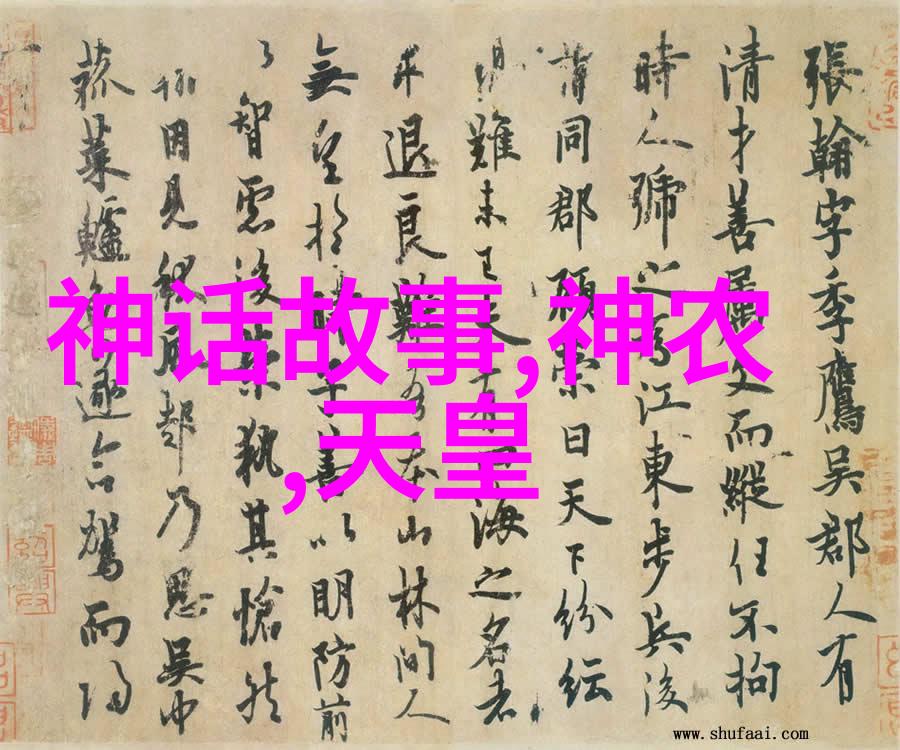 神话故事,神农
,天皇
張翰字季鷹吳郡人有
清才善屬文而縱任不拘
時人號之為江東步兵後
同郡顧榮曰天下紛紜
難未已夫有四海之名者
求退良難吾本山林間人
無望於時子善以明防前
以智慮後榮執其愴然
翰因見秋風起乃思吳中
菰菜鱸魚遂命駕而歸
www.shufaai.com